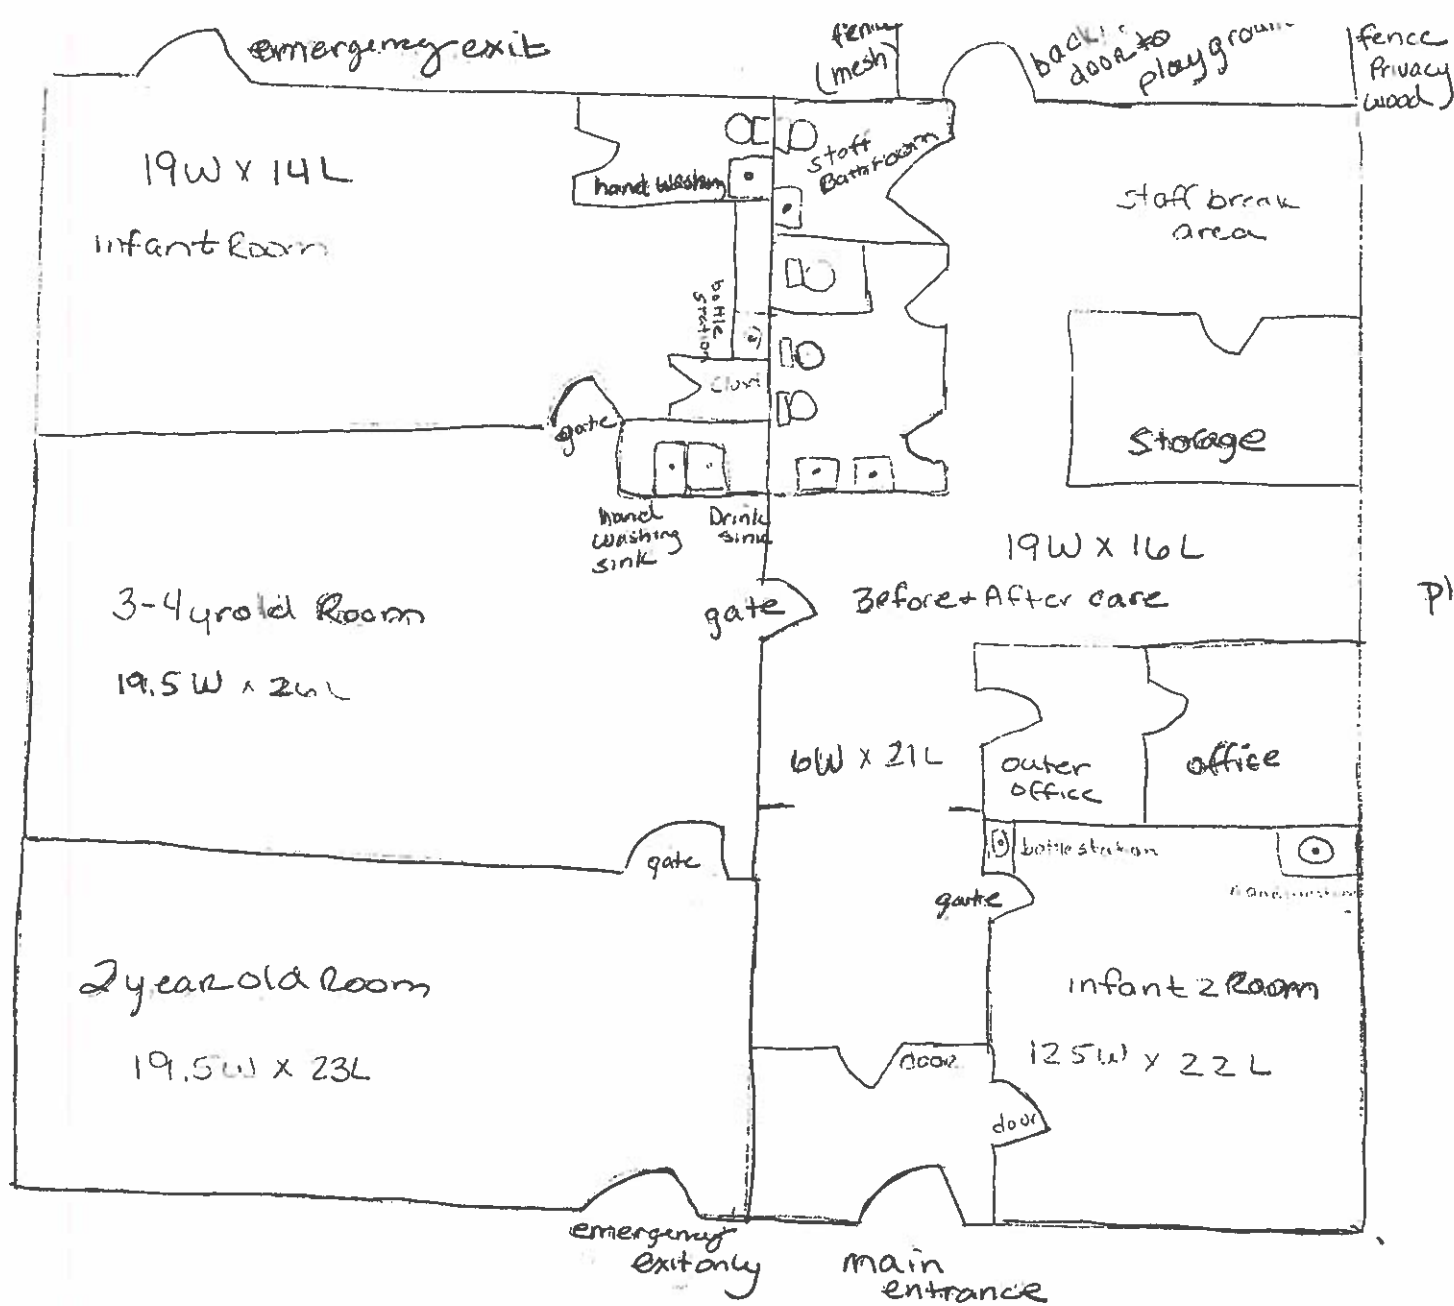 emergency exit
fence
(mesh)
back
door to
playground
fence
Privacy
wood)
19W X 14L
infant Room
hand washing
staff
Bathroom
staff break
area
bottle
station
gate
Storage
hand
washing
sink
Drink
sink
19W X 16L
Before + After care
gate
3-4 yr old Room
19.5W x 26L
pl
6W X 21L
outer
office
office
gate
bottle station
gate
2 year old Room
19.5W X 23L
infant 2 Room
125W X 22L
door
door
emergency
exit only
main
entrance